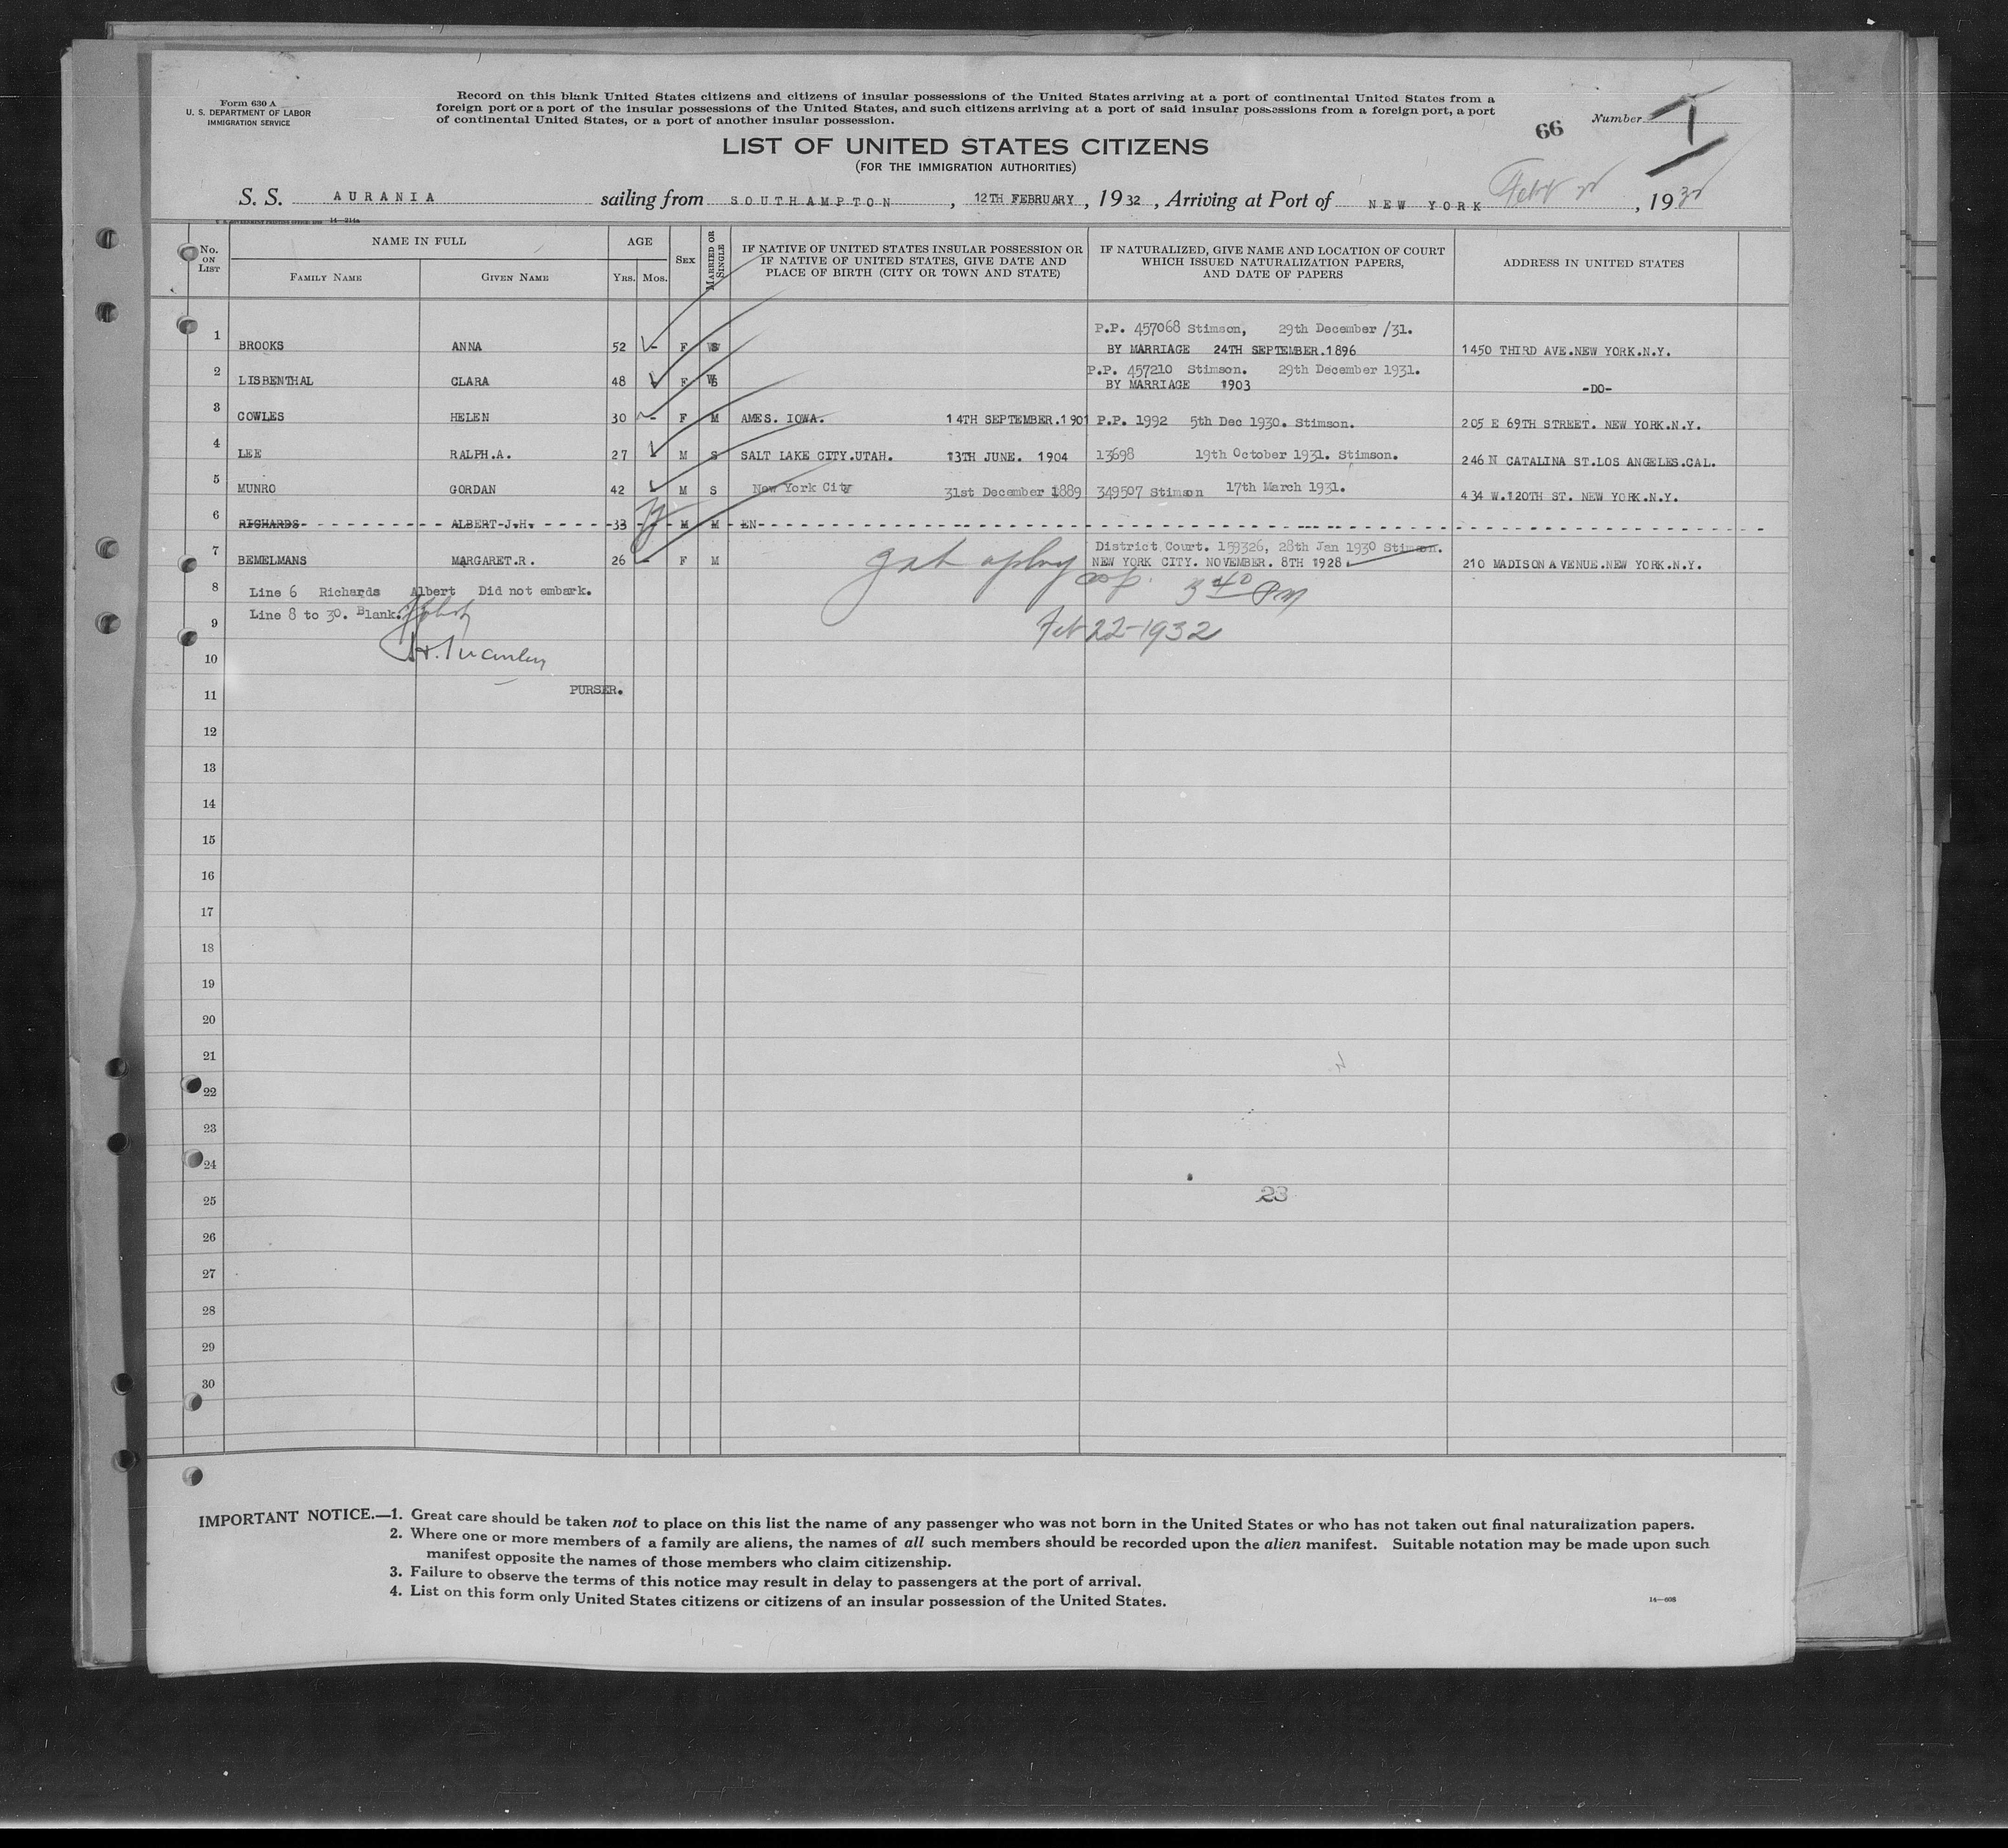 Form 630 A
U. S. DEPARTMENT OF LABOR
IMMIGRATION SERVICE
Record on this blank United States citizens and citizens of insular possessions of the United States arriving at a port of continental United States from a
foreign port or a port of the insular possessions of the United States, and such citizens arriving at a port of said insular possessions from a foreign port, a port
of continental United States, or a port of another insular possession.
66 Number 1
LIST OF UNITED STATES CITIZENS
(FOR THE IMMIGRATION AUTHORITIES)
S. S. AURANIA sailing from SOUTHAMPTON, 12TH FEBRUARY, 1932, Arriving at Port of NEW YORK Feby 22, 1932
14—214a
No. ON LIST
NAME IN FULL
FAMILY NAME GIVEN NAME
AGE
YRS. MOS.
SEX
MARRIED OR SINGLE
IF NATIVE OF UNITED STATES INSULAR POSSESSION OR
IF NATIVE OF UNITED STATES, GIVE DATE AND
PLACE OF BIRTH (CITY OR TOWN AND STATE)
IF NATURALIZED, GIVE NAME AND LOCATION OF COURT
WHICH ISSUED NATURALIZATION PAPERS,
AND DATE OF PAPERS
ADDRESS IN UNITED STATES
P.P. 457068 Stimson, 29th December /31.
1 BROOKS ANNA 52 - F W BY MARRIAGE 24TH SEPTEMBER.1896 1450 THIRD AVE.NEW YORK.N.Y.
P.P. 457210 Stimson. 29th December 1931.
2 LISBENTHAL CLARA 48 F W BY MARRIAGE 1903 -DO-
3 COWLES HELEN 30 - F M AMES. IOWA. 14TH SEPTEMBER.1901 P.P. 1992 5th Dec 1930. Stimson. 205 E 69TH STREET. NEW YORK.N.Y.
4 LEE RALPH.A. 27 M S SALT LAKE CITY.UTAH. 13TH JUNE. 1904 13698 19th October 1931. Stimson. 246 N CATALINA ST.LOS ANGELES.CAL.
5 MUNRO GORDAN 42 M S New York City 31st December 1889 349507 Stimson 17th March 1931. 434 W.120TH ST. NEW YORK.N.Y.
6 RICHARDS ALBERT-J.H. 33 M M EN
District Court. 159326, 28th Jan 1930 Stimson.
7 BEMELMANS MARGARET.R. 26 - F M NEW YORK CITY. NOVEMBER. 8TH 1928. 210 MADISON AVENUE.NEW YORK.N.Y.
8 Line 6 Richards Albert Did not embark.
3 40 PM
Line 8 to 30. Blank.
9
Feb 22-1932
10
11 PURSER.
12
13
14
15
16
17
18
19
20
21
22
23
24
23
25
26
27
28
29
30
IMPORTANT NOTICE.—1. Great care should be taken not to place on this list the name of any passenger who was not born in the United States or who has not taken out final naturalization papers.
2. Where one or more members of a family are aliens, the names of all such members should be recorded upon the alien manifest. Suitable notation may be made upon such
manifest opposite the names of those members who claim citizenship.
3. Failure to observe the terms of this notice may result in delay to passengers at the port of arrival.
4. List on this form only United States citizens or citizens of an insular possession of the United States.
14—608